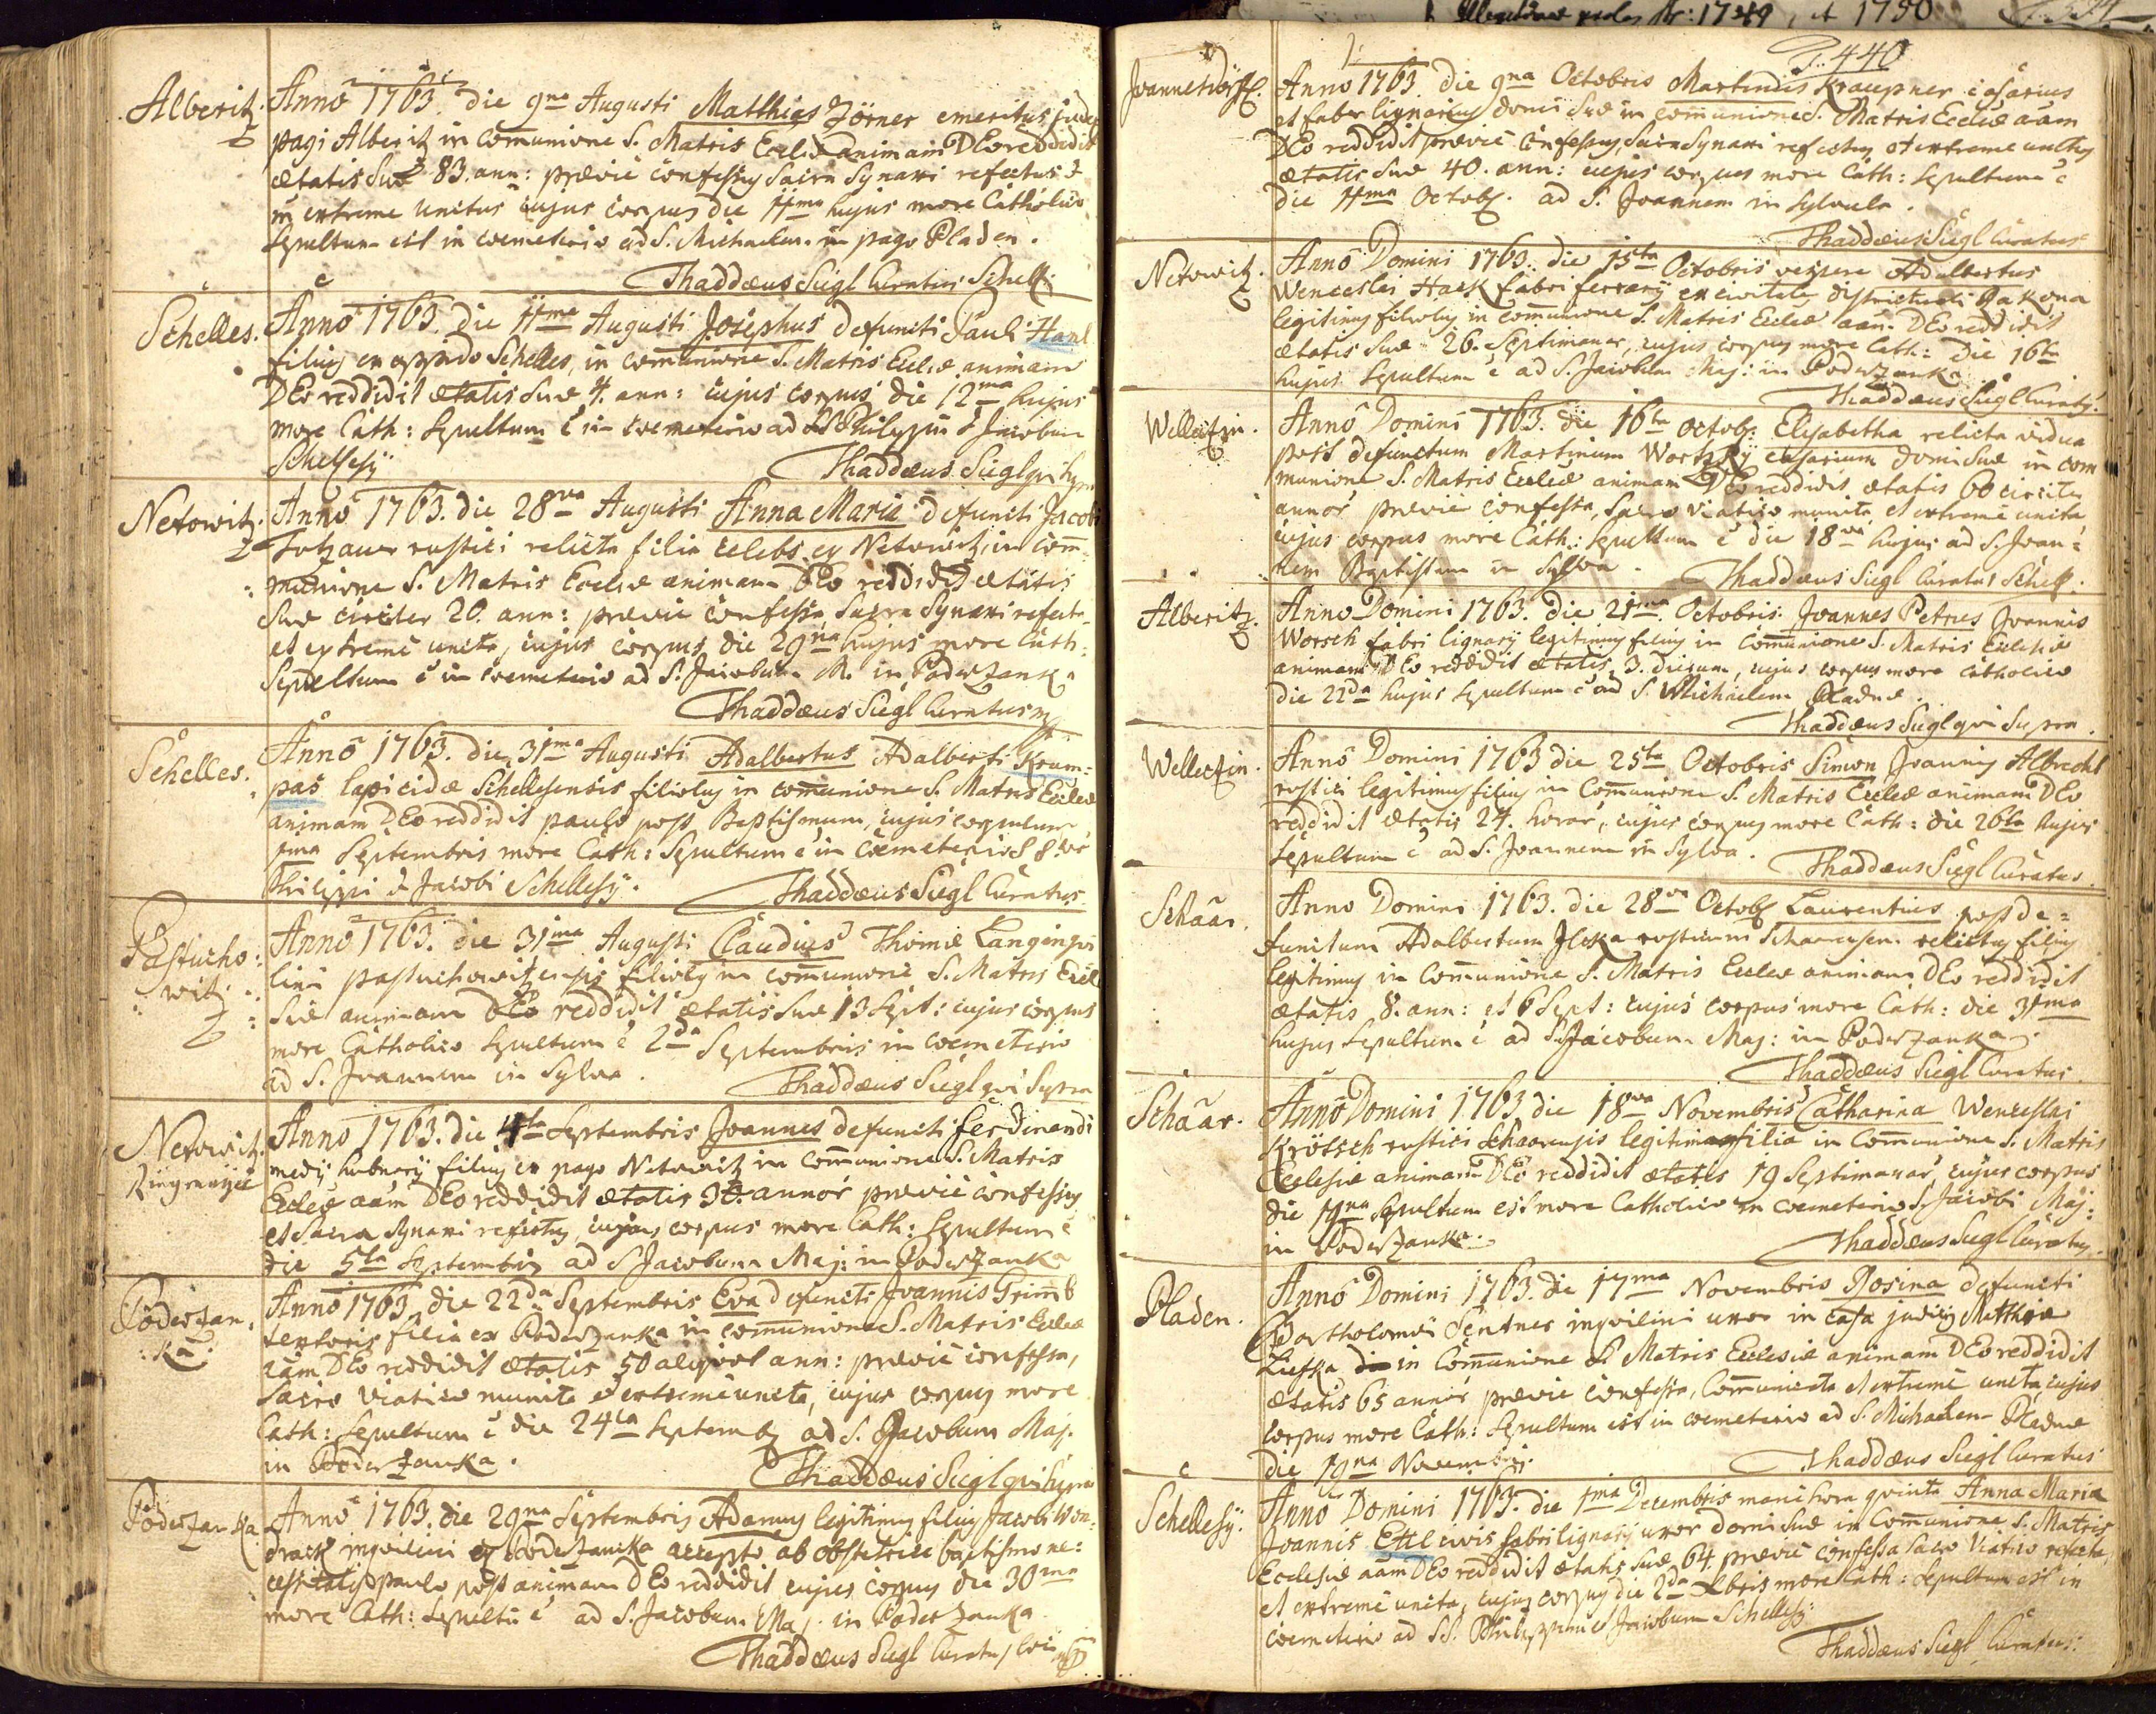 Alberitz. Anno 1763. die 9na Augusti Matthias Zörner emeritus judex
pagi Alberitz in comunione S. Matris Eccliæ animam DEo reddidit
ætatis Suæ 83. ann: prævie confessus Sacra Synaxi refectus &
extreme unctus cujus corpus die 11ma hujus more Catholico
Sepultum est in coemeterio ad S. Michaelem in pago Pladen.
Thaddæus Siegl Curatus Schell:
Schelles. Anno 1763. die 11ma Augusti Josephus defuncti Pauli Hanl
filius ex oppido Schelles, in comunione S. Matris Eccliæ animam
DEo reddidit ætatis Suæ 4. ann: cujus corpus die 12ma hujus
more Cath: Sepultum ē in coemeterio ad SS Philippū & Jacobum
Schellesÿ
Thaddæus Siegl qui supra
Netowitz. Anno 1763. die 28va Augusti Anna Maria defuncti Jacobi
rustici relicta filia cælebs ex Netowitz, in com=
munione S. Matris Eccliæ animam DEo reddidit ætatis
Suæ circiter 20. ann: prævie confessa, Sacra Synaxi refecta
et extreme uncta, cujus corpus die 29na hujus more Cath:
Sepultum ē in coemeterio ad S. Jacobum M. in Poderzanka
Thaddæus Siegl Curatus
Schelles. Anno 1763. die 31ma Augusti Adalbertus Adalberti Kram=
pas lapicidæ Schellesensis filiolus in comunione S. Matris Eccliæ
animam DEo reddidit paulo post Baptismum, cujus corpusculum
1ma Septembris more Cath: Sepultum ē in Coemeterio SS
Philippi & Jacobi Schellesÿ.
Thaddæus Siegl Curatus
Pastucho: Anno 1763. die 31ma Augusti Claudius Thomæ Langinqui
witz lini pastuchowitzensis filiolus in comunione S. Matris Eccle
siæ animam DEo reddidit ætatis Suæ 13 Sept: cujus corpus
more Catholico Sepultum ē 2da Septembris in coemeterio
ad S. Joannem in Sylva.
Thaddæus Siegl qui Supra
Netowitz. Anno 1763. die 4ta Septembris Joannes defuncti Ferdinandi
medÿ hubnarÿ filius ex pago Netowitz in Comunione S. Matris
Eccliæ aām DEo reddidit ætatis annor prævie confessus
et Sacra Synaxi refectus, cujus corpus more Cath: Sepultum ē
die 5ta Septembris ad S Jacobum Maj: in Poderzanka
Poderzan: Anno 1763. die 22da Septembris Eva defuncti Joannis Grimb
ka. textoris filia ex Poderzanka in comunione S. Matris Eccliæ
aām DEo reddidit ætatis 50 aliquot ann: prævie confessa,
Sacro Viatico munita et extreme uncta, cujus corpus more
Cath: Sepultum ē die 24ta Septemb: ad S. Jacobum Maj.
in Poderzanka.
Thaddæus Siegl qui supra
Poderzanka Anno 1763. die 29na Septembris Adamus legitimus filius Jacobi Won:
drack inquilini ex Poderzancka accepto ab obstetrice baptismo ne:
cessitatis paulo post animam DEo reddidit cujus corpus die 30ma
more Cath: Sepultū ē ad S. Jacobum Maj. in Poderzanka
Thaddæus Siegl Curatus
P: 440
Joannesdorff. Anno 1763. die 9na Octobris Martinus Kraupner casarius
et faber lignarius domi Suæ in comunione S. Matris Eccliæ aām
DEo reddidit prævie confessus, Sacra Synaxi refectus et extreme unctus
ætatis Suæ 40. ann: cujus corpus more Cath: Sepultum ē
die 11ma Octob. ad S. Joannem in Sylvula.
Thaddæus Siegl Curatus
Netowitz. Anno Domini 1763. die 15ta Octobris vespere Adalbertus
Wenceslai Hask fabri ferrarÿ ex civitate districtuali Rakona
legitimus filiolus in comunione S. Matris Eccliæ aām DEo reddidit
ætatis Suæ 26. Septimanar, cujus corpus more Cath: die 16ta
hujus Sepultum ē ad S. Jacobum Maj: in Poderzanka.
Thaddæus Siegl Curatus.
Welletzin. Anno Domini 1763. die 16ta Octob: Elisabetha relicta vidua
post defunctum Martinum Wortzky casarium domi Suæ in com
munione S. Matris Eccliæ animam DEo reddidit ætatis 60 circiter
annor prævie confessa, Sacro viatico munita et extreme uncta
cujus corpus more Cath: Sepultum ē die 18va hujus ad S. Joan=
nem Baptistam in Sylva.
Thaddæus Siegl Curatus Schell.
Alberitz. Anno Domini 1763. die 21ma Octobris Joannes Petrus Joannis
Worsch fabri lignarÿ legitimus filius in Comunione S. Matris Ecclesiæ
animam DEo reddidit ætatis 3. dierum, cujus corpus more catholico
die 22da hujus Sepultum ē ad S. Michaelem Pladnæ.
Thaddæus Siegl qui Supra.
Welletzin. Anno Domini 1763 die 25ta Octobris Simon Joannis Albrecht
rustici legitimus filius in Comunione S. Matris Eccliæ animam DEo
reddidit ætatis 24. horar, cujus corpus more Cath: die 26ta hujus
Sepultum ē ad S. Joannem in Sylva.
Thaddæus Siegl Curatus.
Schaar. Anno Domini 1763. die 28va Octob Laurentius post de=
functum Adalbertum Jlcka rusticum Schaarensem relictus filius
legitimus in Comunione S. Matris Eccliæ animam DEo reddidit
ætatis 8. ann: et 6 Sept: cujus corpus more Cath: die 31ma
hujus Sepultum ē ad S. Jacobum Maj: in Poderzanka.
Thaddæus Siegl Curatus.
Schaar. Anno Domini 1763 die 18va Novembris Catharina Wenceslai
Krötsch rustici Schaarensis legitima filia in Comunione S. Matris
Ecclesiæ animam DEo reddidit ætatis 19 Septimanar, cujus corpus
die Sepultum est more Catholico in coemeterio S. Jacobi Maj:
in Poderzanka.
Thaddæus Siegl Curatus.
Pladen. Anno Domini 1763. die 17ma Novembris Rosina defuncti
Bartholomæi Sentner inquilini uxor in casa judicis Matthiæ
Liefka in Comunione S. Matris Ecclesiæ animam DEo reddidit
ætatis 65 annor prævie confessa, Comunicata et extreme uncta, cujus
corpus more Cath: Sepultum est in coemeterio ad S. Michaelem Pladnæ
die 19na Novembris.
Thaddæus Siegl Curatus
Schellesÿ. Anno Domini 1763. die 1ma Decembris mani hora quinta Anna Maria
Joannis Ettl civis fabri lignarÿ uxor domi Suæ in Comunione S. Matris
Ecclesiæ aām DEo reddidit ætatis Suæ 64 prævie confessa Sacro Viatico refecta,
et extreme uncta, cujus corpus die 2da Xbris more Cath: Sepultum est in
coemeterio ad SS. Philippum et Jacobum Schellesÿ
Thaddæus Siegl Curatus.